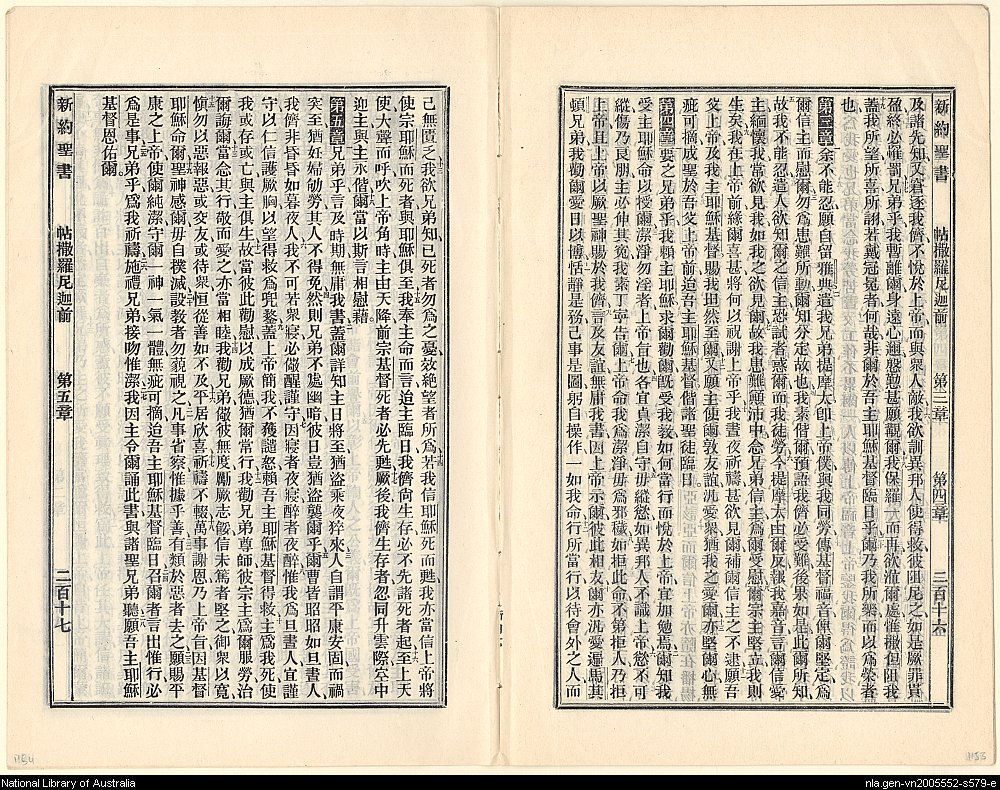 新約聖書 帖撒羅尼迦前 第三章 第四章 三百十六
及諸先知又窘逐我儕不悅於上帝而與衆人敵我欲訓異邦人使得救彼阻尼之如是厥罪貫
盈終必罹罰兄弟乎我暫離爾身遠心邇慇懃甚願覿爾我保羅一而再欲涖爾處惟撒但阻我
蓋我所望所喜所誇若戴冠冕者何哉非爾於吾主耶穌基督臨日乎爾乃我所樂而以爲榮者
也
第三章余不能忍願自留雅典遣我兄弟提摩太卽上帝僕與我同勞傳基督福音俾爾堅定爲
爾信主而慰爾勿爲患難所動爾知分定故也我素偕爾預語我儕必受難後果如是此爾所知
故我不能忍遣人欲知爾之信主恐試者惑爾而我徒勞今提摩太由爾反報我嘉音言爾信愛
主緬懷我當欲見我如我之欲見爾故我患難顚沛中念兄弟信主爲爾受慰爾宗主堅立我則
生矣我在上帝前緣爾喜甚將何以祝謝上帝乎我晝夜祈禱甚欲見爾補爾信主之不逮願吾
父上帝及我主耶穌基督賜我坦然至爾又願主使爾敦友誼汎愛衆猶我之愛爾亦堅爾心無
疵可摘成聖於吾父上帝前迨吾主耶穌基督偕諸聖徒臨日
第四章要之兄弟乎我賴主耶穌求爾勸爾爾旣受我教如何當行而悅於上帝宜加勉焉爾知我
受主耶穌命以授爾潔淨勿淫者上帝旨也各宜貞潔自守毋縱慾如異邦人不識上帝慾不可
縱傷乃良朋主必伸其寃我素丁寧告爾上帝命我爲潔淨毋爲邪穢如拒此命不第拒人乃拒
上帝且上帝以厥聖神賜於我儕言及友誼無庸我書因上帝示爾彼此相友爾亦汎愛遍馬其
頓兄弟我勸爾愛日以博恬靜是務己事是圖躬自操作一如我命行所當行以待會外之人而
己無匱乏我欲兄弟知已死者勿爲之憂效絕望者所爲若我信耶穌死而甦我亦當信上帝將
使宗耶穌而死者與耶穌俱至我奉主命而言迨主臨日我儕尙生存必不先諸死者起至上天
使大聲而呼吹上帝角時主由天降前宗基督死者必先甦厥後我儕生存者忽同升雲際空中
迎主與主永偕爾當以斯言相慰藉
第五章兄弟乎言及時期無庸我書蓋爾詳知主日將至猶盜乘夜猝來人自謂平康安固而禍
突至猶妊婦劬勞其人不得免然則兄弟不處幽暗彼日豈猶盜襲爾乎爾曹皆昭昭如旦晝人
我儕非昏昏如暮夜人我不可若衆寢必儆醒謹守因寢者夜寢醉者夜醉惟我爲旦晝人宜謹
守以仁信護厥胸以望得救爲兜鍪蓋上帝簡我不獲譴怒賴吾主耶穌基督得救主爲我死使
我或存或亡與主俱生故當彼此勸慰以成厥德猶爾常行我勸兄弟尊師彼宗主爲爾服勞治
爾誨爾當念其行敬而愛之亦當相睦我勸兄弟儆彼無度勵厥志餒信未篤者堅之御衆以寬
愼勿以惡報惡或交友或待衆恒從善如不及平居欣喜祈禱不輟萬事謝恩乃上帝旨因基督
耶穌命爾爾聖神感爾毋自撲滅設教者勿藐視之凡事省察惟據乎善有類於惡者去之願賜平
康之上帝使爾純潔守爾一神一氣一體無疵可摘迨吾主耶穌基督臨日召爾者言出惟行必
爲是事兄弟乎爲我祈禱施禮兄弟接吻惟潔我因主令爾誦此書與諸聖兄弟聽願吾主耶穌
基督恩佑爾
新約聖書 帖撒羅尼迦前 第五章 二百十七
National Library of Australia
nla.gen-vn2005552-s579-e